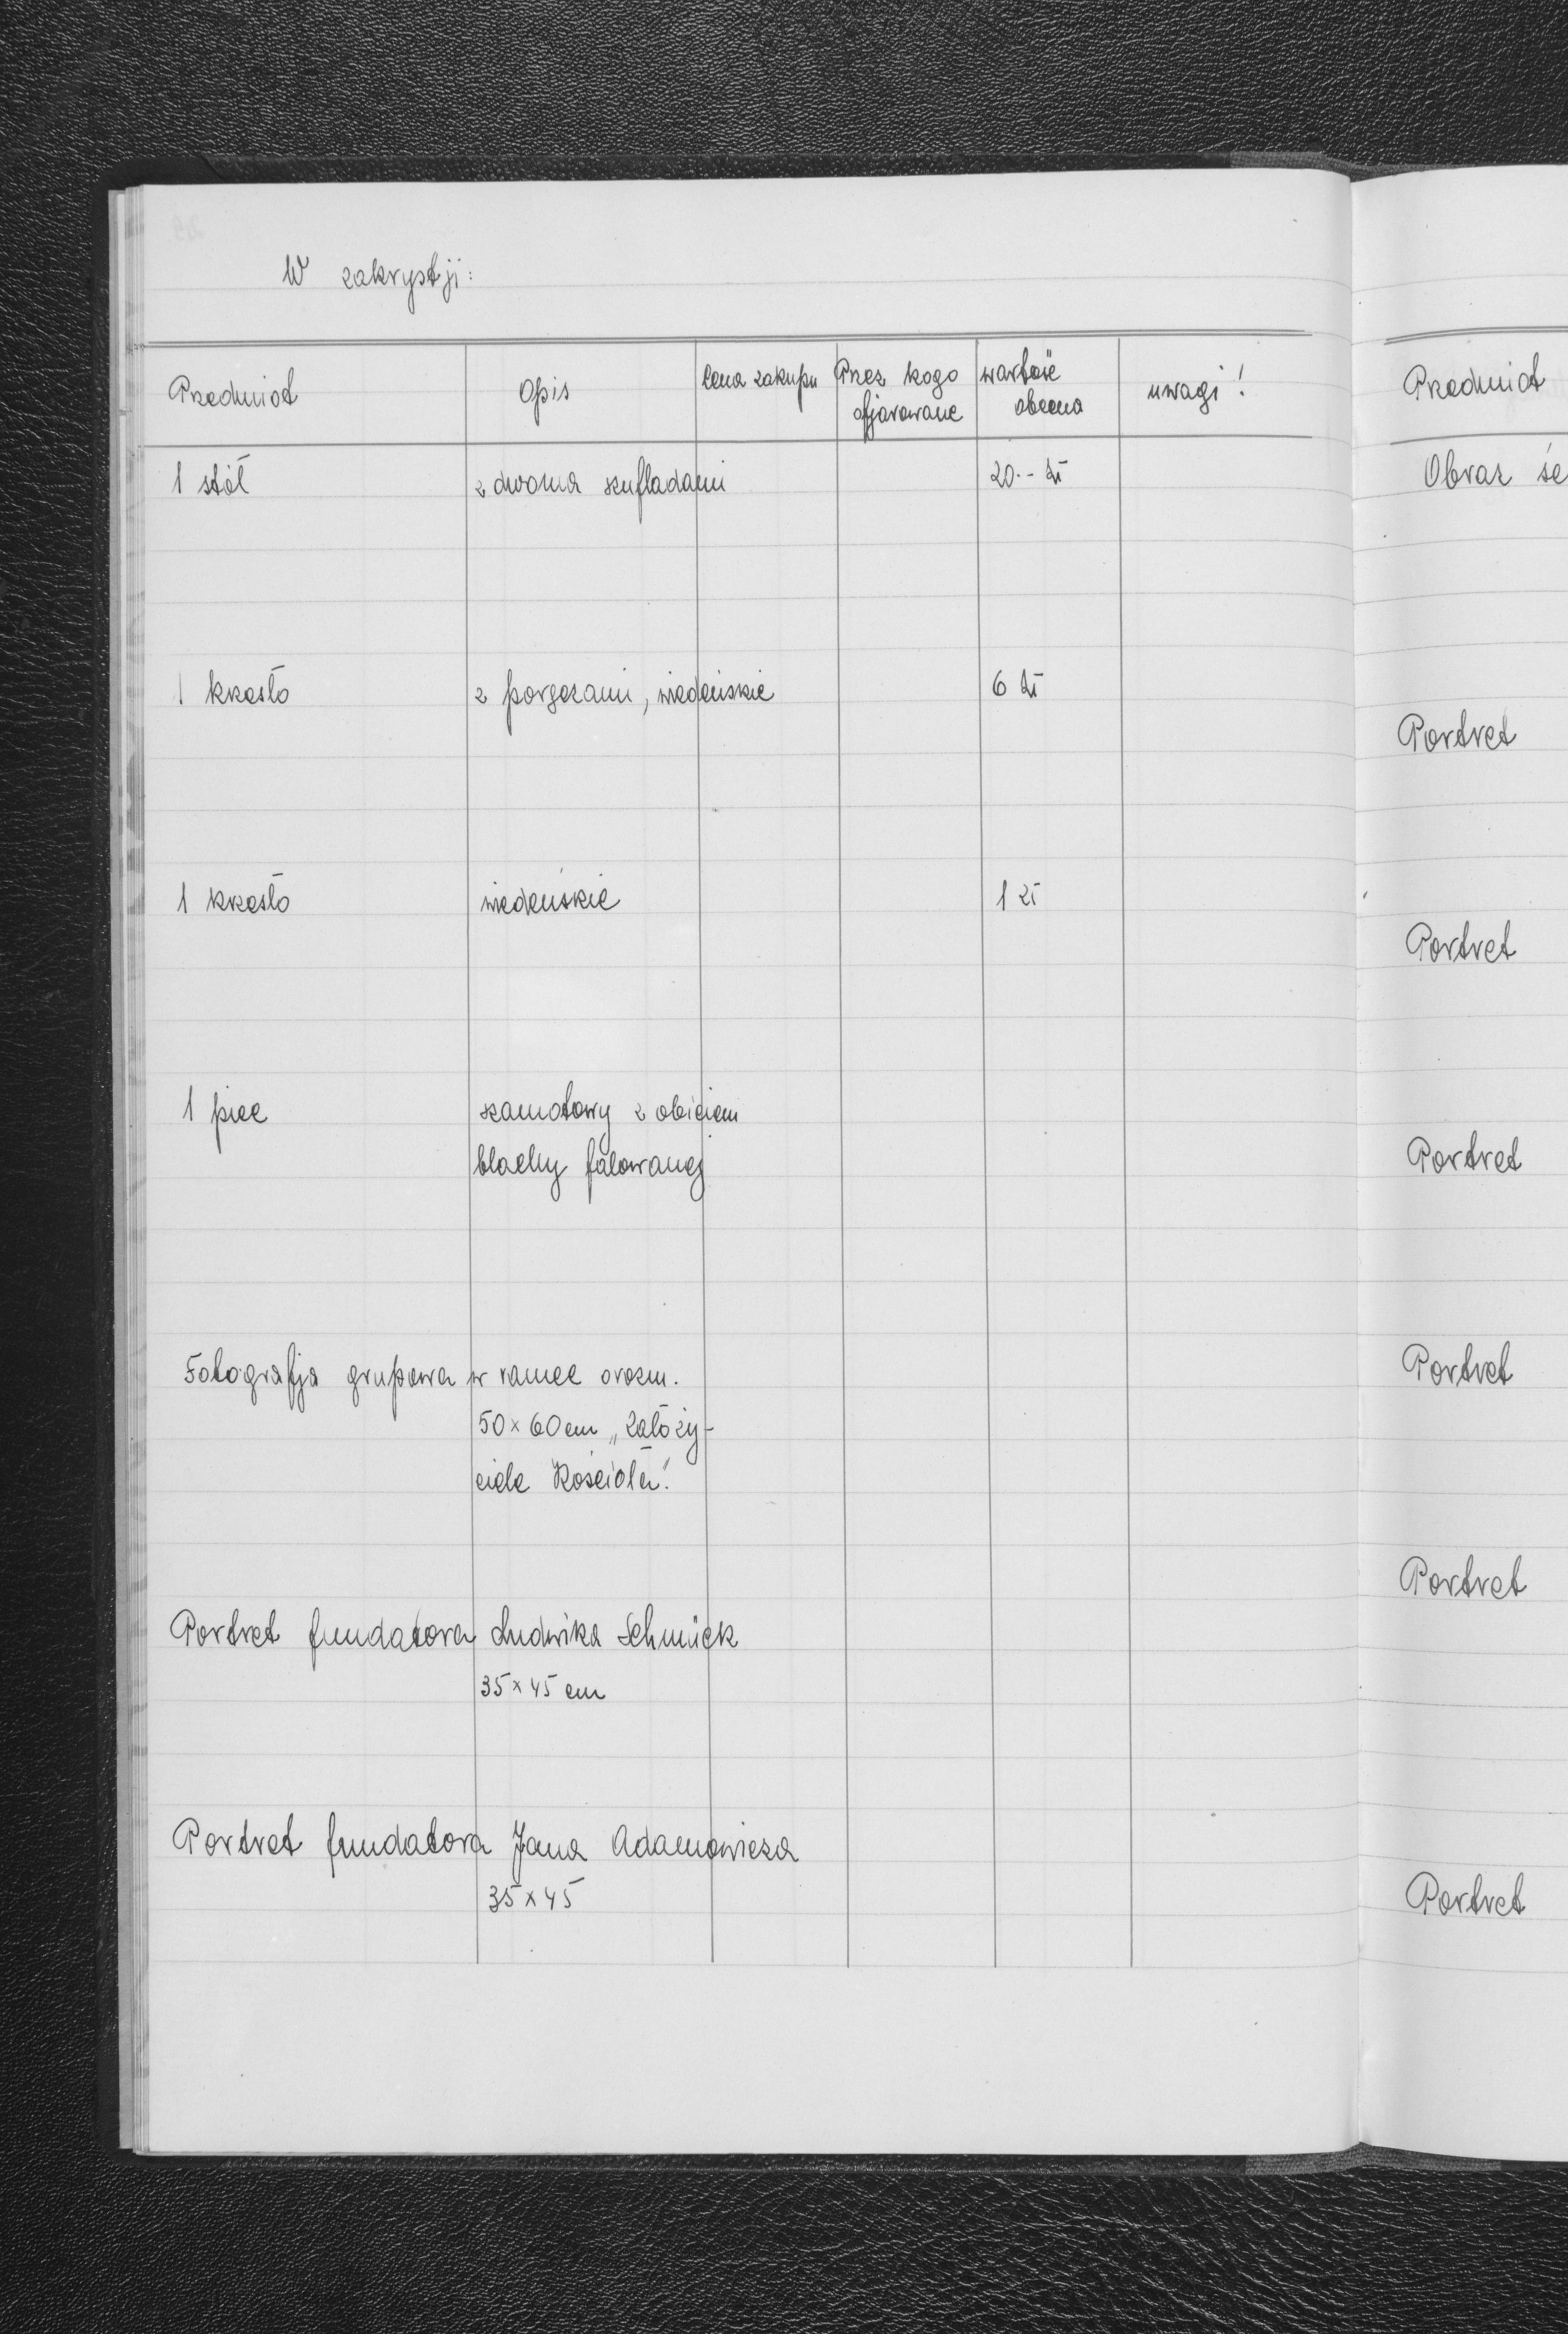 W zakrystji:
Przedmiot opis cena zakupu Przez kogo ofjarowane wartość obecna uwagi!
1 stół z dwoma szufladami 20.-- zł
1 krzesło z poręczami, wiedeńskie 6 zł
1 krzesło wiedeńskie 1 zł
1 piec szamotowy z obiciem
blachy falowanej
Fotografja grupowa w ramce orozm.
50 x 60 cm „Założy-
ciele Kościoła".
Portret fundatora Ludwika Schmück
35 x 45 cm
Portret fundatora Jana Adamowicza
35 x 45
Przedmiot
Obraz
Portret
Portret
Portret
Portret
Portret
Portret